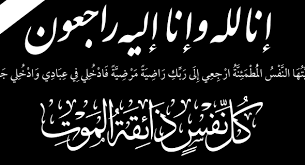 إنا لله وإنا إليه راجعون
يَّتُهَا النَّفْسُ الْمُطْمَئِنَّةُ ارْجِعِي إِلَى رَبِّكِ رَاضِيَةً مَرْضِيَّةً فَادْخُلِي فِي عِبَادِي وَادْخُلِي جَ
كُلُّ نَفْسٍ ذَائِقَةُ الْمَوْتِ